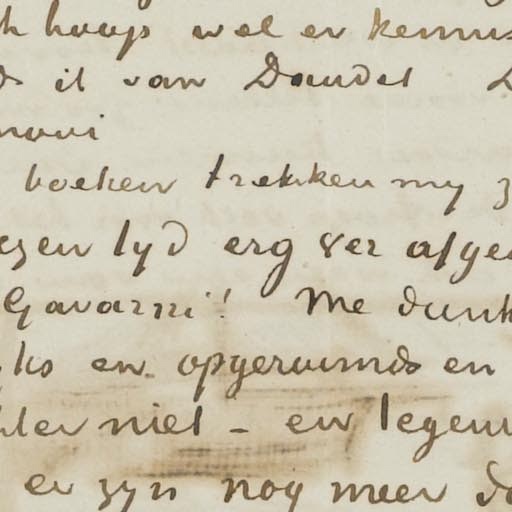 ik hoop wel er kennis
ds ik van Daudet L
mooi
boeken trekken my z
ezen tyd erg ver afge
Gavarni'! Me dunk
yks en opgeruimds en
hter niet - en tegen
er zyn nog meer da